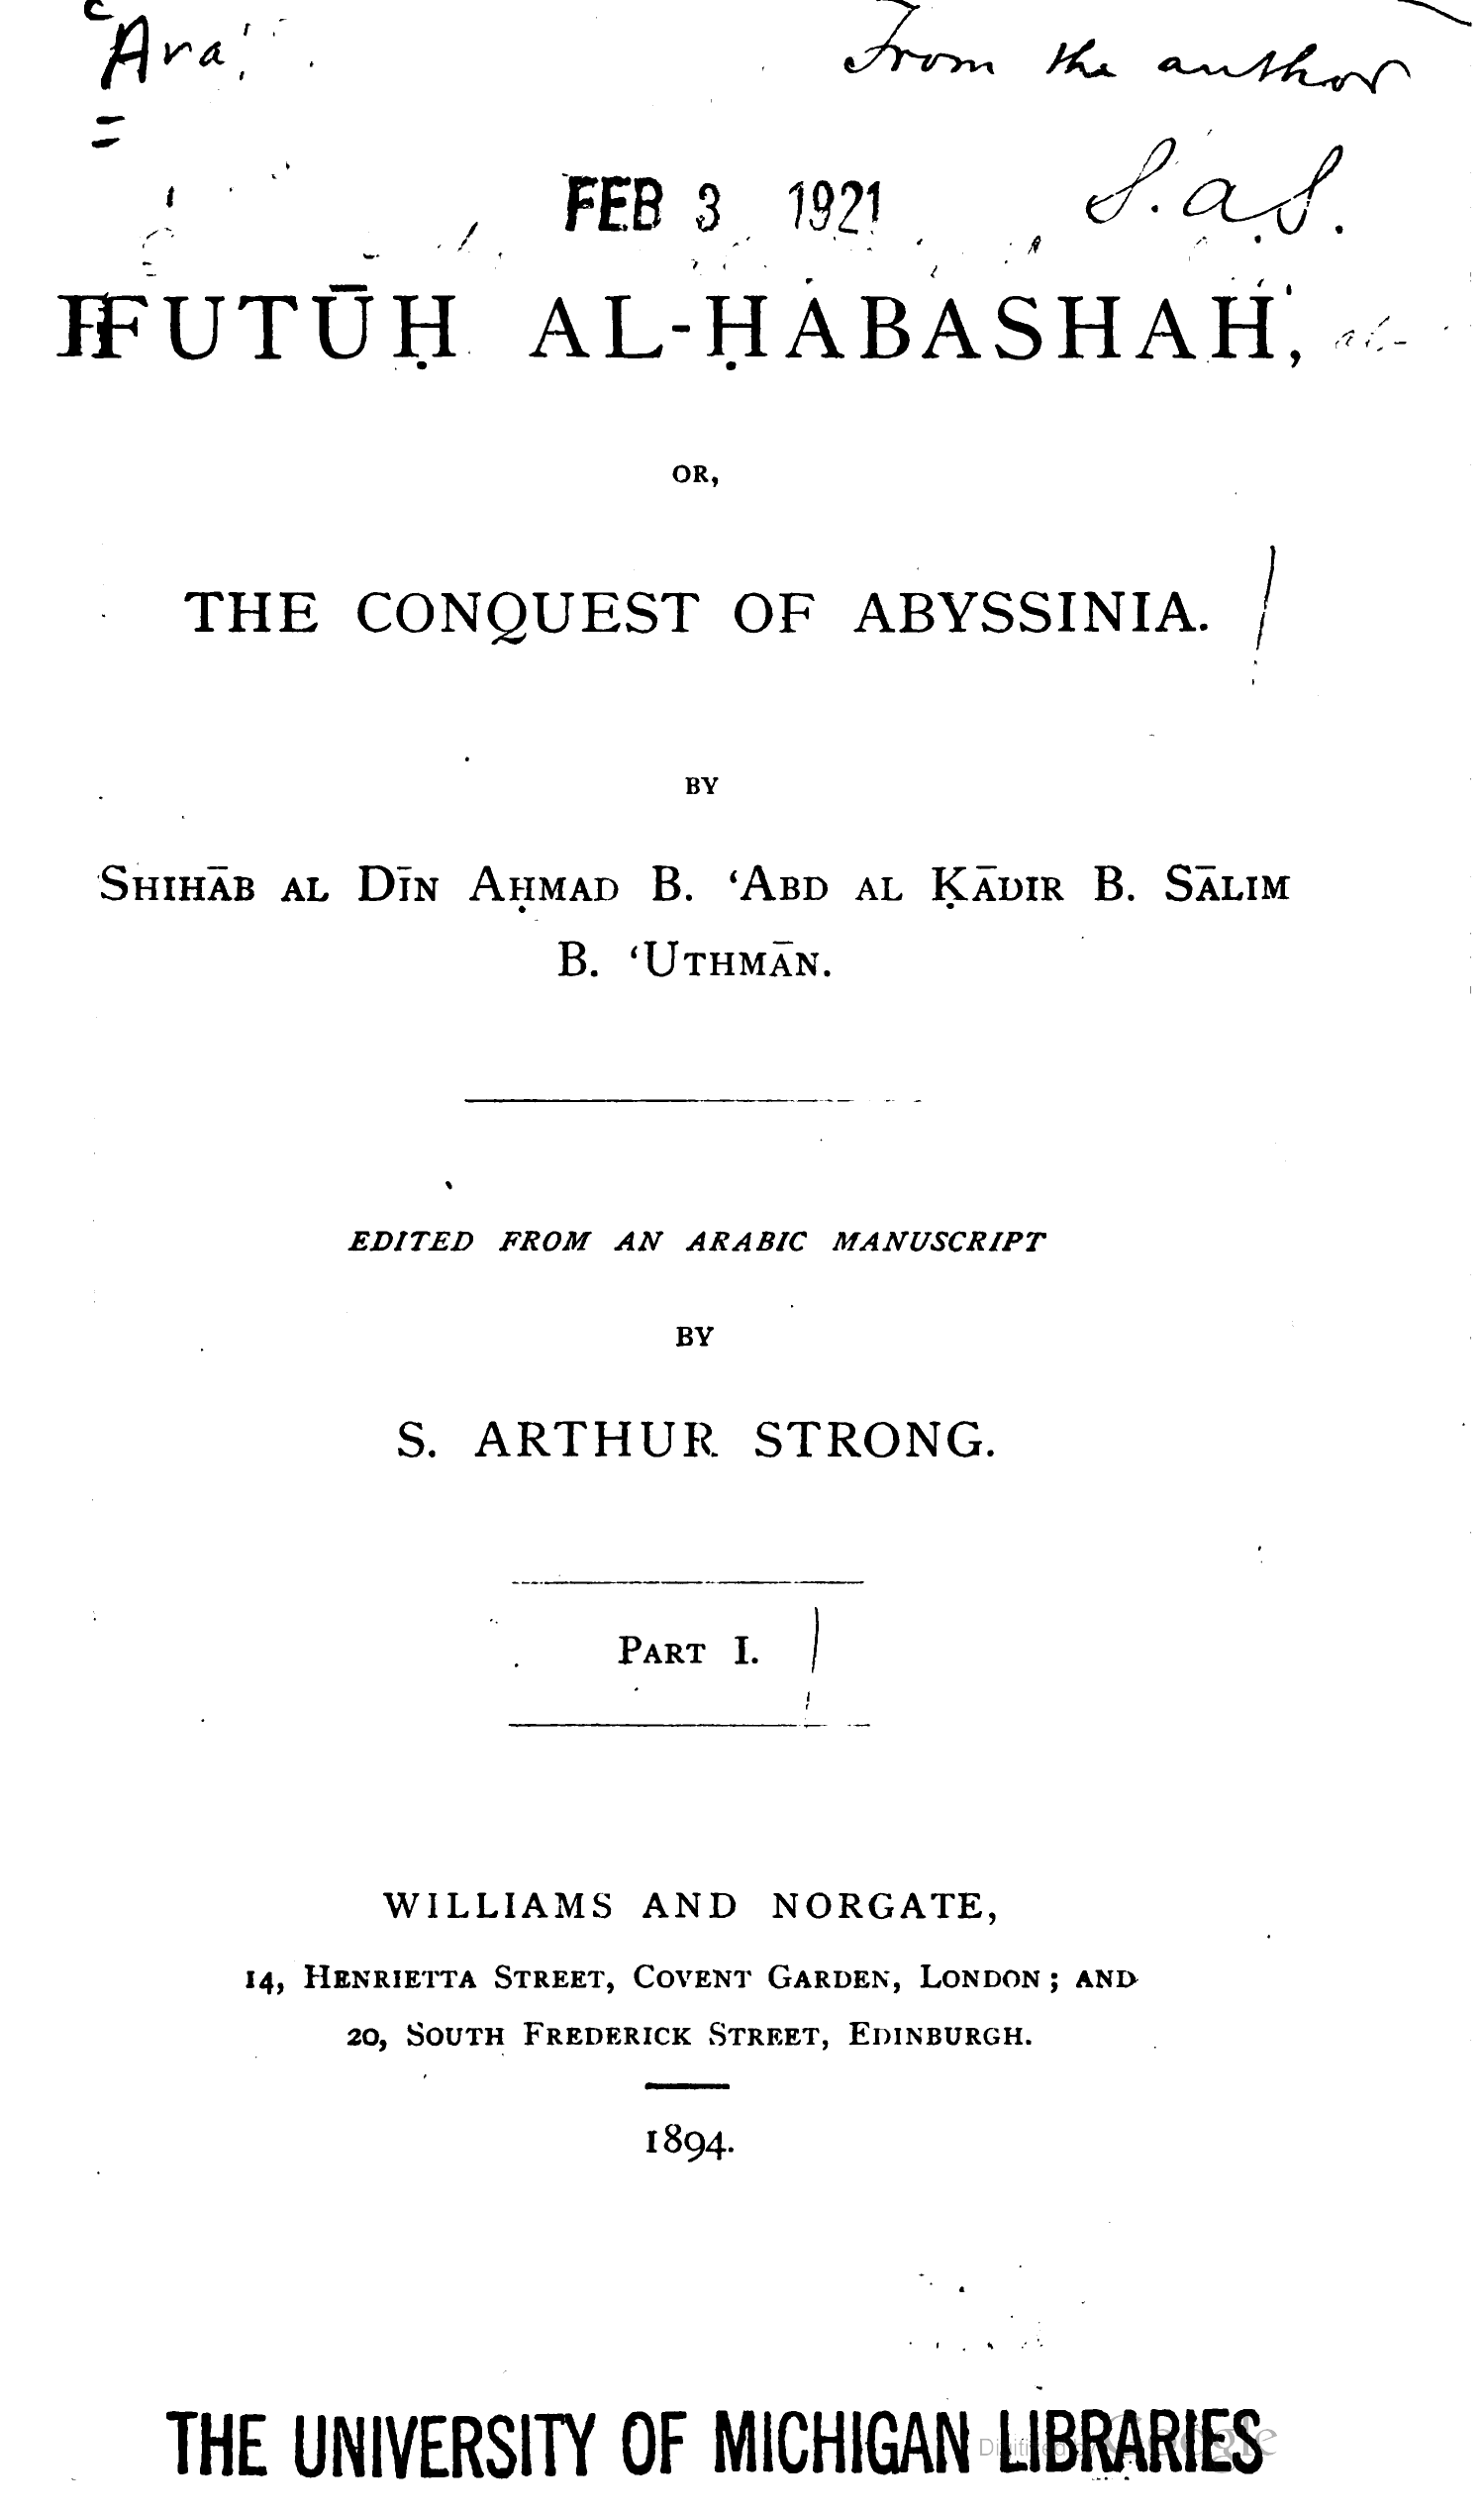 From the author
FEB 3 1921 S. a. S.
FUTŪḤ AL-ḤABASHAH,
OR,
THE CONQUEST OF ABYSSINIA.
BY
SHIHĀB AL DĪN AḤMAD B. ‘ABD AL ḲĀDIR B. SĀLIM
B. ‘UTHMĀN.
EDITED FROM AN ARABIC MANUSCRIPT
BY
S. ARTHUR STRONG.
PART I.
WILLIAMS AND NORGATE,
14, HENRIETTA STREET, COVENT GARDEN, LONDON; AND
20, SOUTH FREDERICK STREET, EDINBURGH.
1894.
THE UNIVERSITY OF MICHIGAN LIBRARIES
Digitized by Google